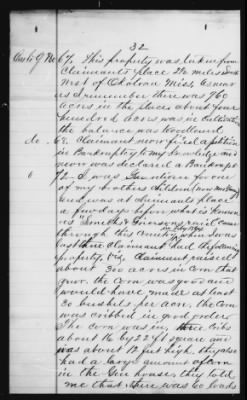 32
67. This property was taken from
Claimants place 2½ miles
West of Okolona Miss, as near
as I remember there was 960
acres in the place about four
hundred acres was in cultivation
the balance was Woodland
do. 68. Claimant never filed a petition
in Bankruptcy to my knowledge and
never was declared a Bankrupt
72. I was Guardian for one
of my brothers children
and was at claimants place
a few days before what is known
as Smiths & Griersons raid came
through this Country when I was
last there claimant had the following
property, viz, Claimant raised
about 300 acres in corn that
year. the corn was good and
would have made at least
30 bushels per acre, the Corn
was cribbed in good order
The corn was in three cribs
about 16 by 22 ft square and
was about 12 feet high. they also
had a large amount of corn
in the Gin house, they told
me that there was 60 loads